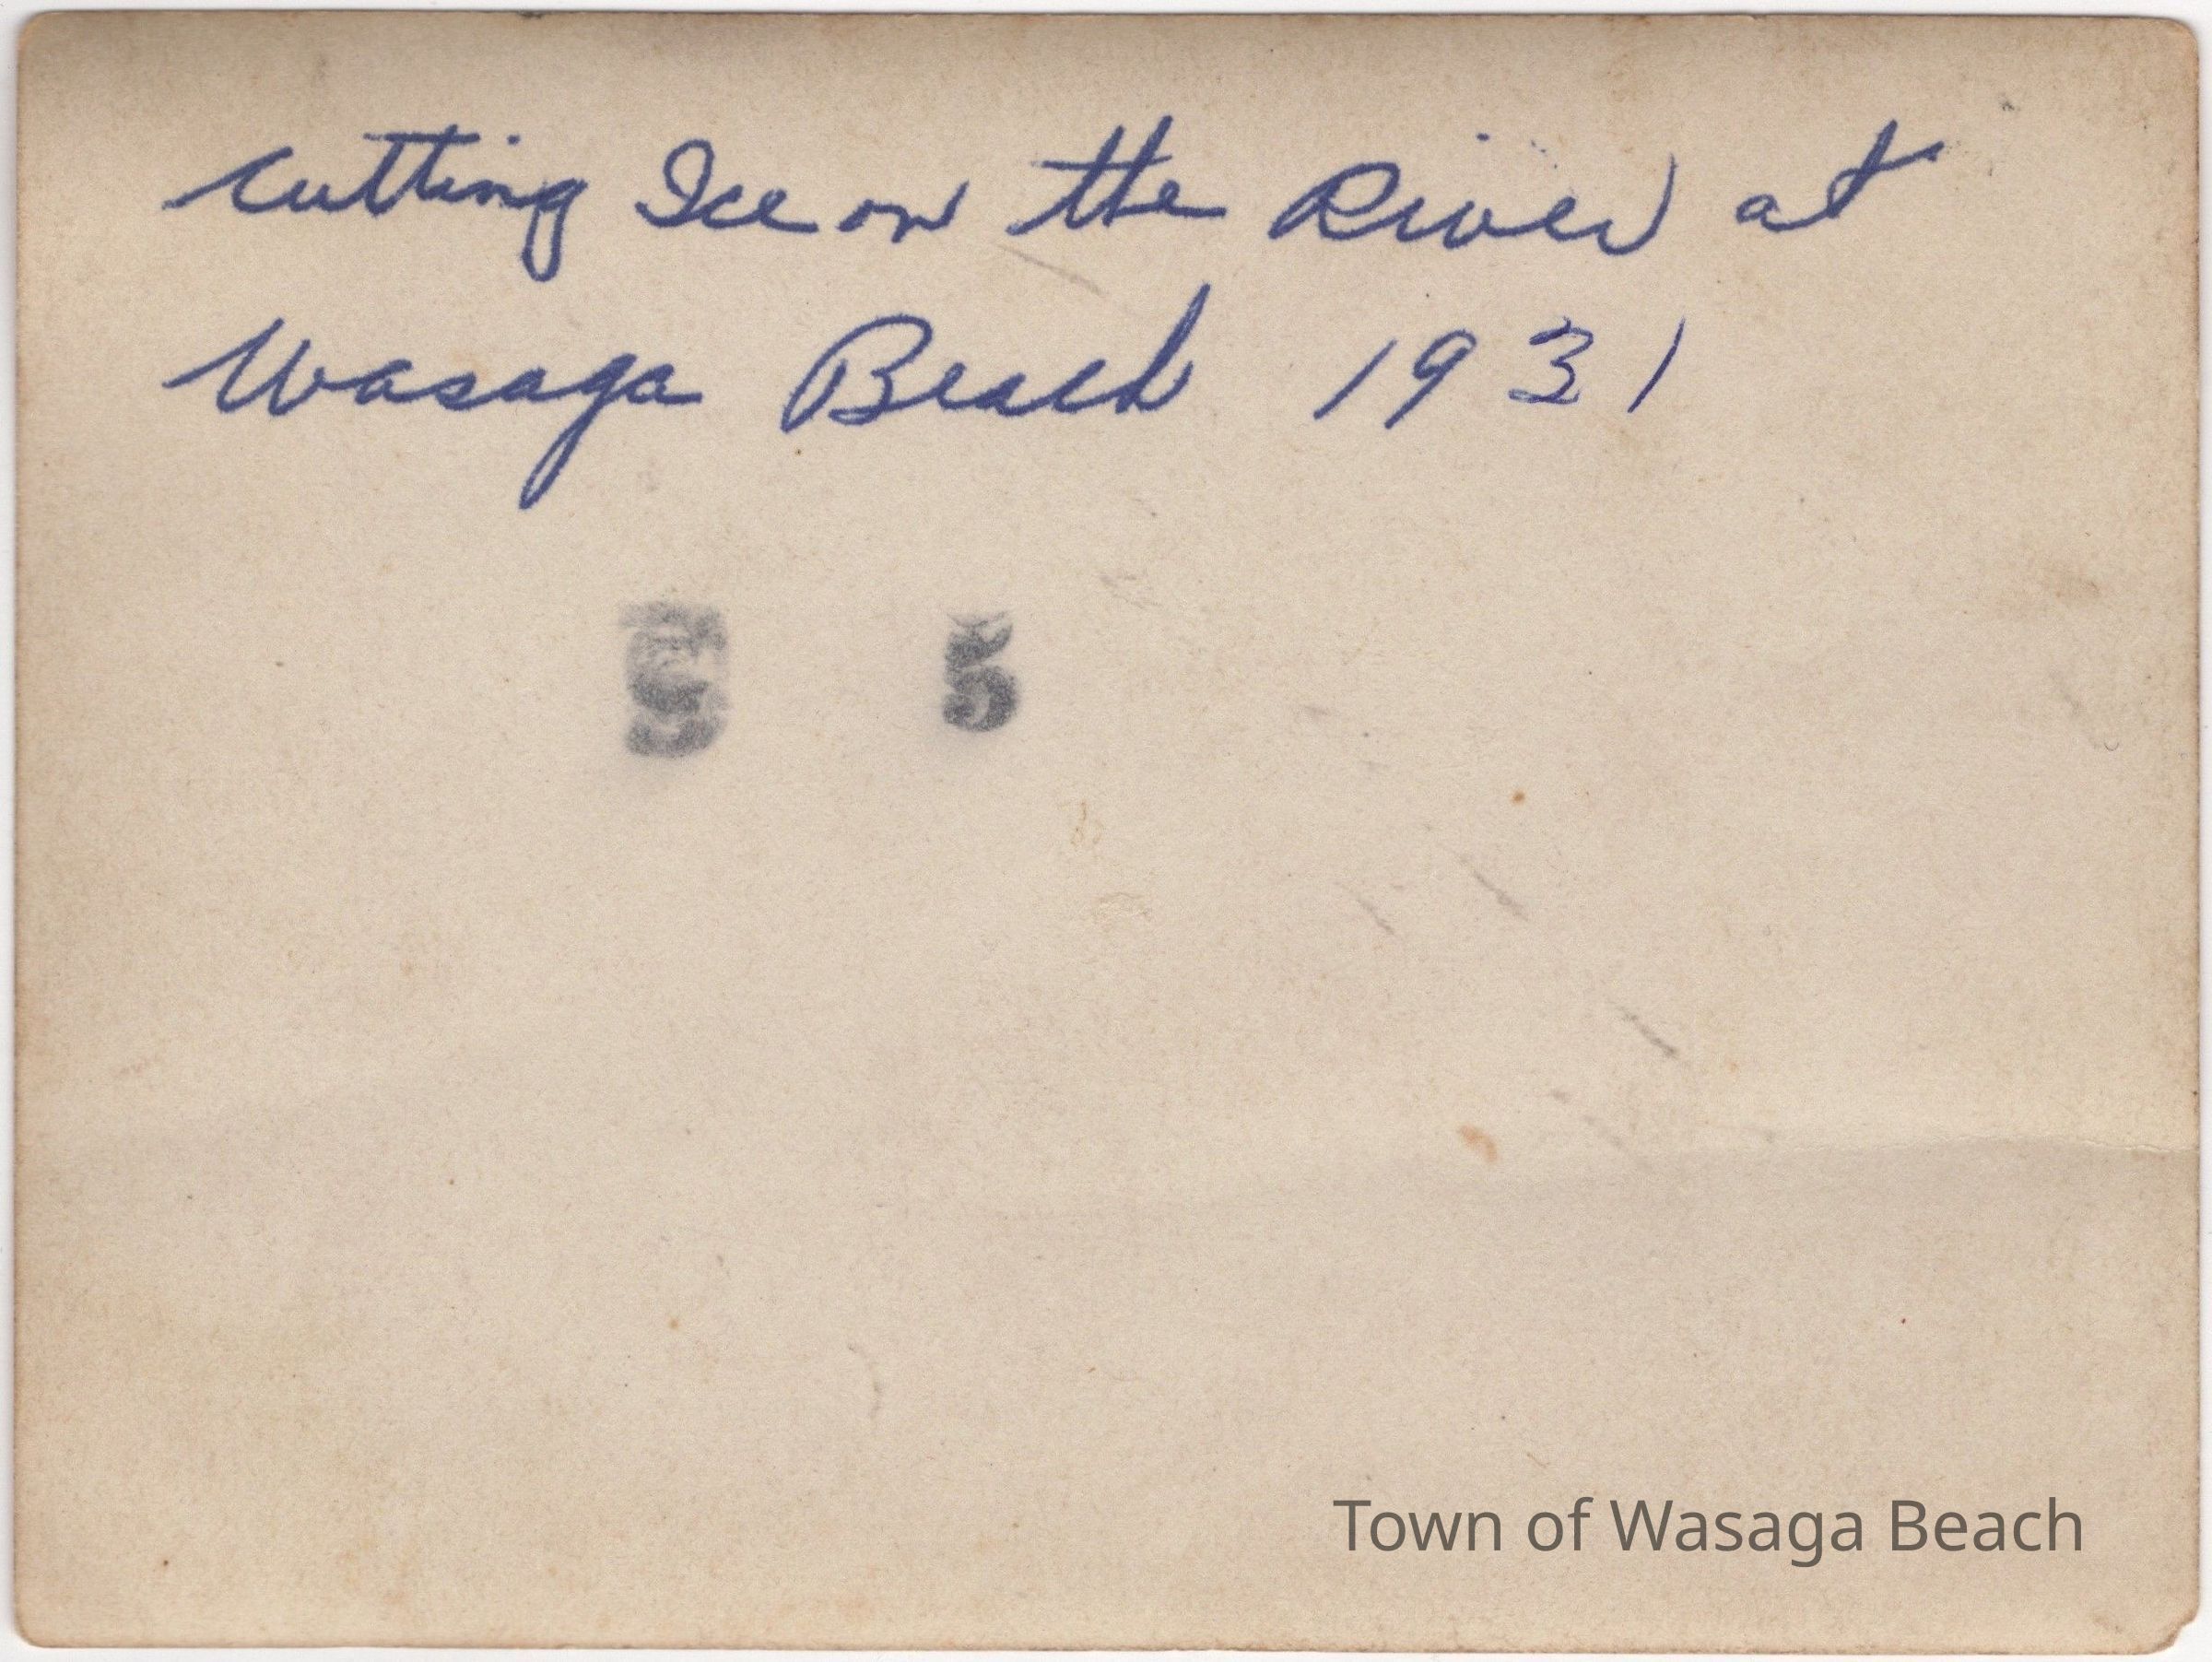 Cutting Ice on the River at
Wasaga Beach 1931
5
Town of Wasaga Beach